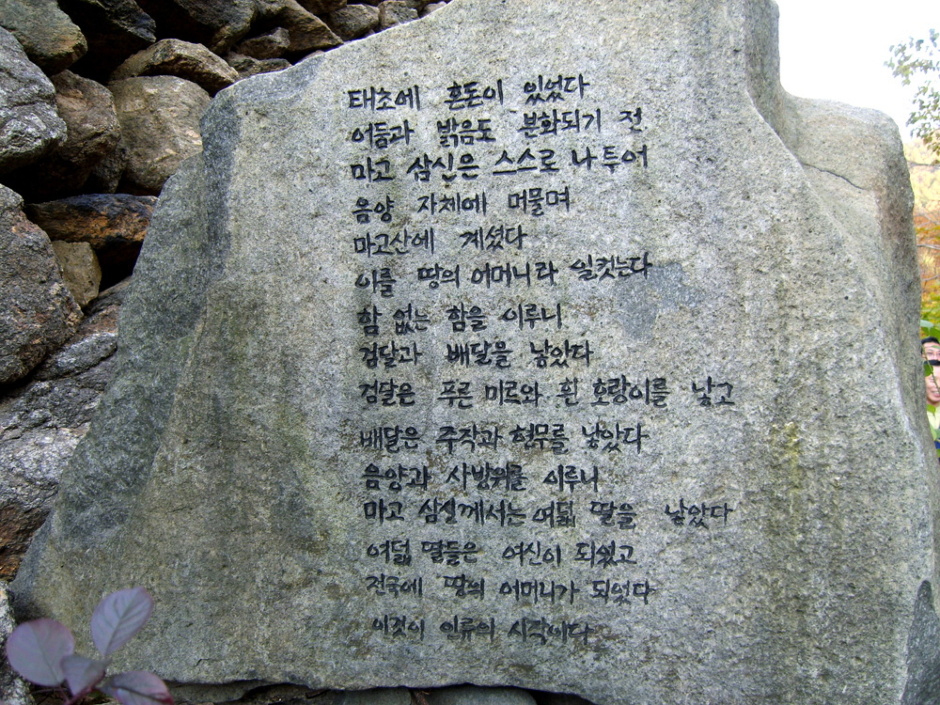 태초에 혼돈이 있었다
어둠과 밝음도 분화되기 전
마고 삼신은 스스로 나투어
음양 자체에 머물며
마고산에 계셨다
이를 땅의 어머니라 일컷는다
함 없는 함을 이루니
검달과 배달을 낳았다
검달은 푸른 미르와 흰 호랑이를 낳고
배달은 주작과 현무를 낳았다
음양과 사방위를 이루니
마고 삼신께서는 여덟 딸을 낳았다
여덟 딸들은 여신이 되셨고
전국에 땅의 어머니가 되었다
이것이 인류의 시작이다